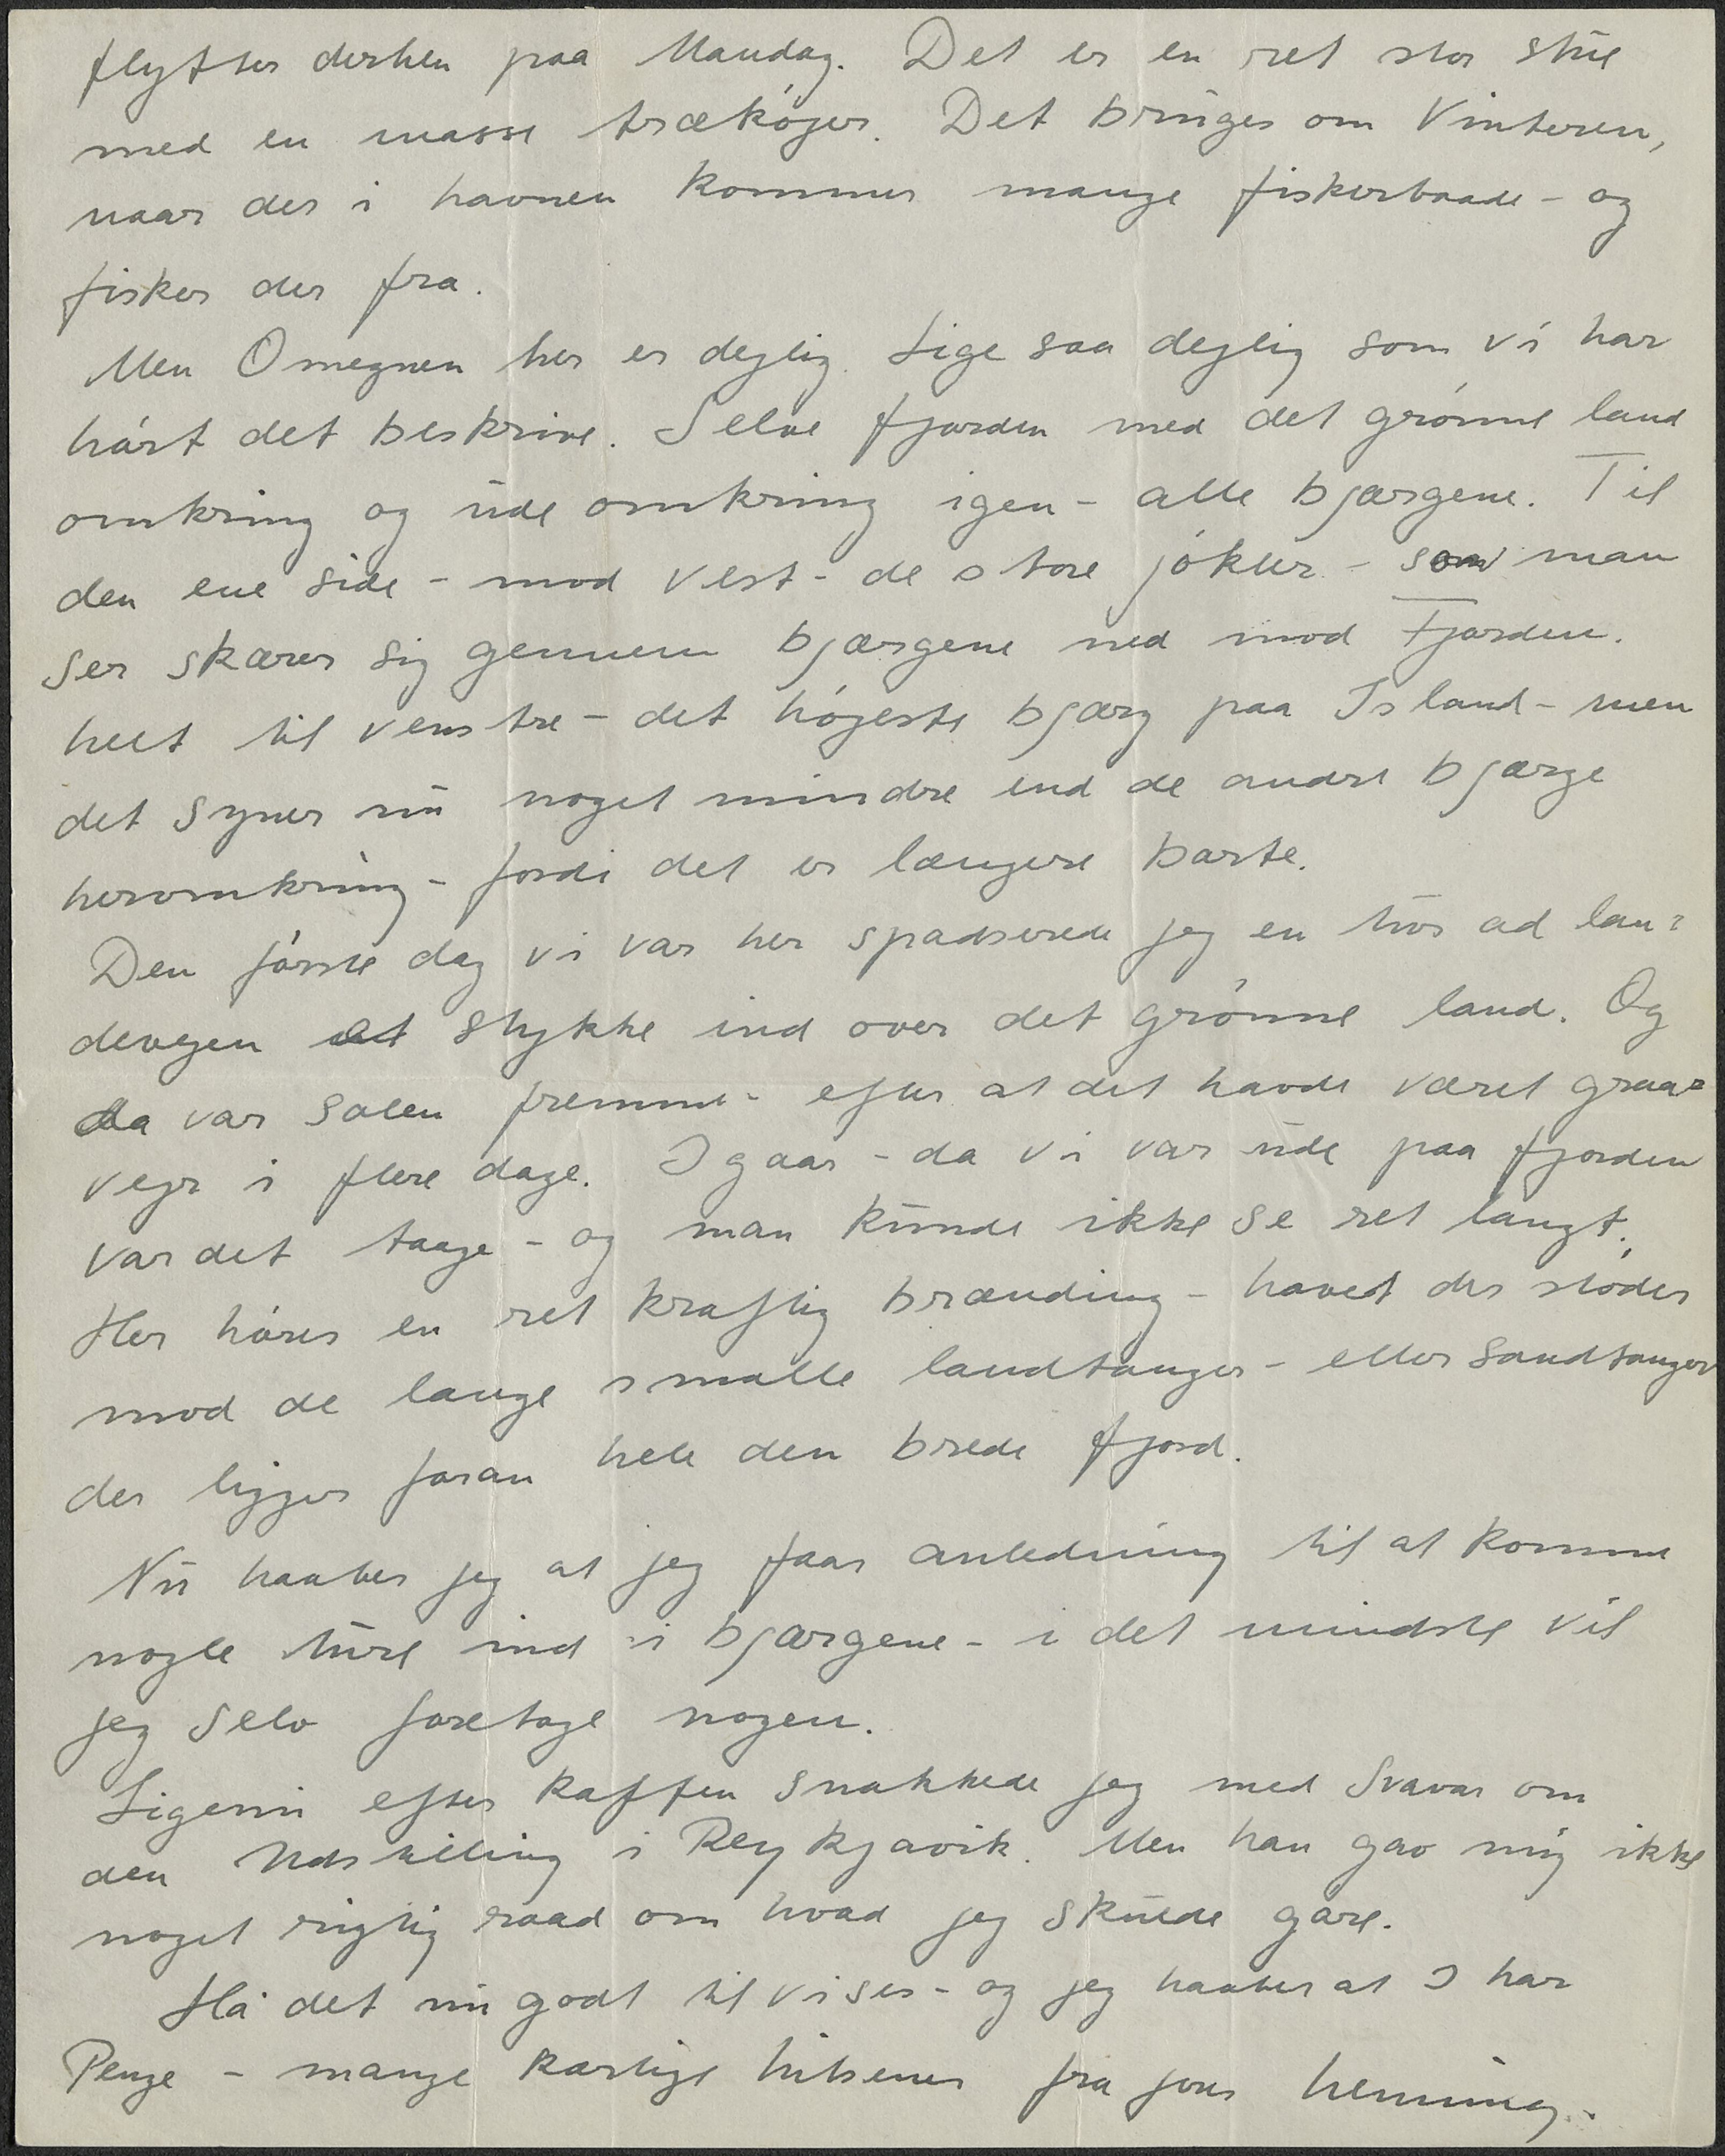 flytter derhen paa Mandag. Det er en ret stor stue
med en masse trækøjer. Det bruges om Vinteren,
naar der i havnen kommer mange fiskerbaade - og
fisker der fra.
Men Omegnen her er dejlig. Lige saa dejlig som vi har
hørt det beskrive. Selve fjorden med det grønne land
omkring og ude omkring igen - alle bjærgene. Til
den ene side - mod vest - de store jøkler - som man
ser skærer sig gennem bjærgene ned mod Fjorden.
helt til venstre - det højeste bjærg paa Island - men
det syner nu noget mindre end de andre bjærge
heromkring - fordi det er længere borte.
Den første dag vi var her spadserede jeg en tur ad lan=
devejen et stykke ind over det grønne land. Og
da var solen fremme - efter at det havde været graa=
vejr i flere dage. I gaar - da vi var ude paa fjorden
var det taage - og man kunde ikke se ret langt.
Her høres en ret kraftig brænding - havet der støder
mod de lange smalle landtanger - eller sandtanger
der ligger foran hele den brede fjord.
Nu haaber jeg at jeg faar anledning til at komme
nogle ture ind i bjærgene - i det mindste vil
jeg selv foretage nogen.
Ligenu efter kaffen snakkede jeg med Svavar om
den Udstilling i Reykjavik. Men han gav mig ikke
noget rigtig raad om hvad jeg skulde gøre.
Ha' det nu godt til vi ses - og jeg haaber at I har
Penge - mange kærlige hilsener fra jeres henning.